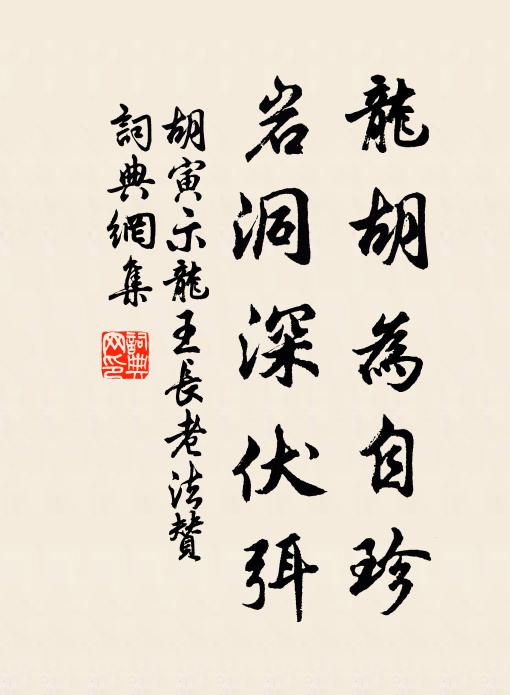 龍胡為自珍
岩洞深伏弭
胡寅示龍王長老法贊
詞典網集
詞典
网印